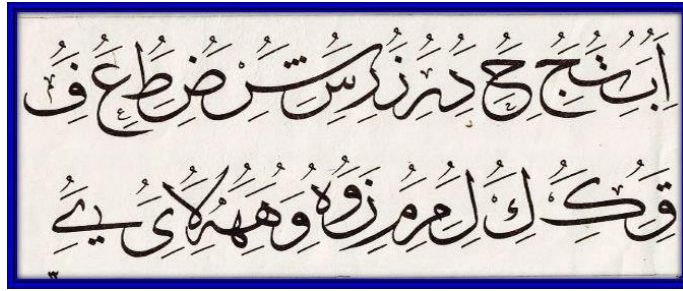 اَِبَُِتَُِ جَُِ حَُِ دَُِ رَُِ زَُِ رَُِ سَُِ شَُِ ضَُِ طَُِ عَُِ فَُِ
قَُِ كَُِ كَُِ لَُِ مَُِ مَُِ زَُِ وَُ هَُِ وَُِ هَُِ هَُِ لَاَُِ ىَُِ يَُِ